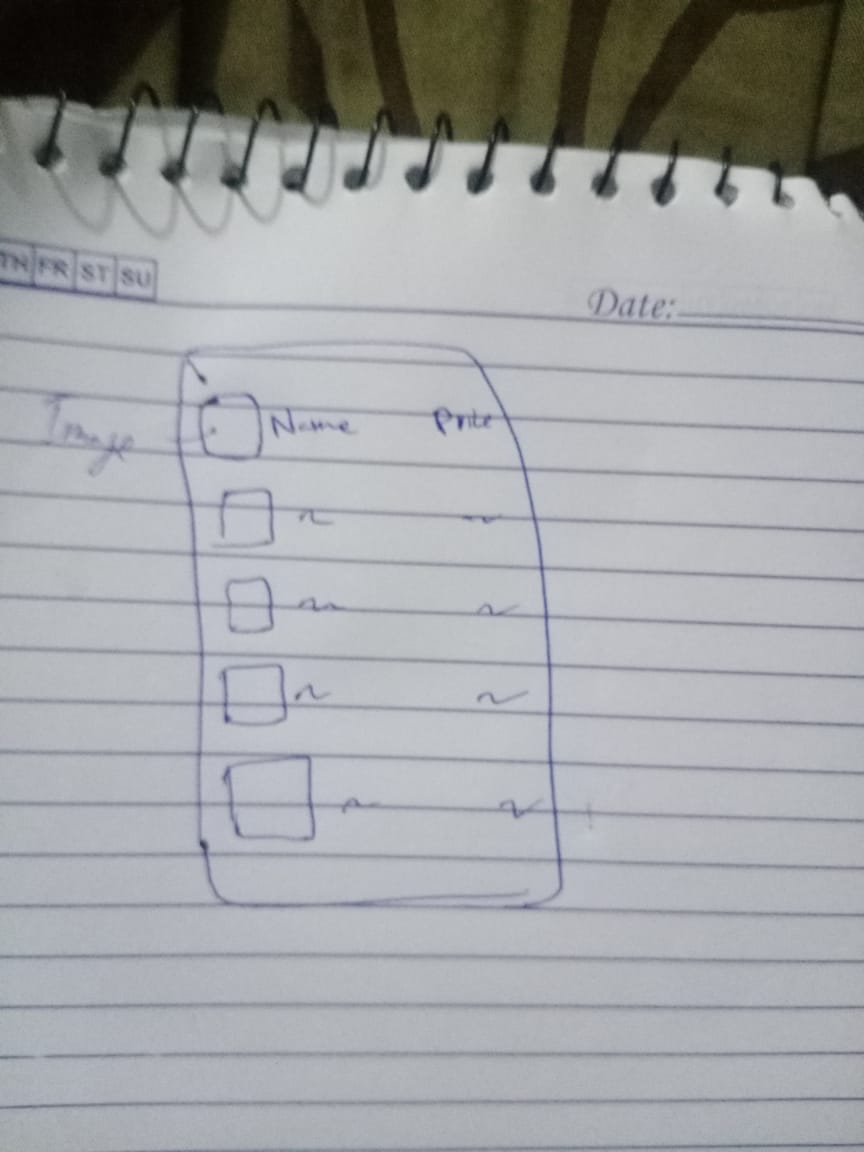 TH FR ST SU
Date:
Image Name Price